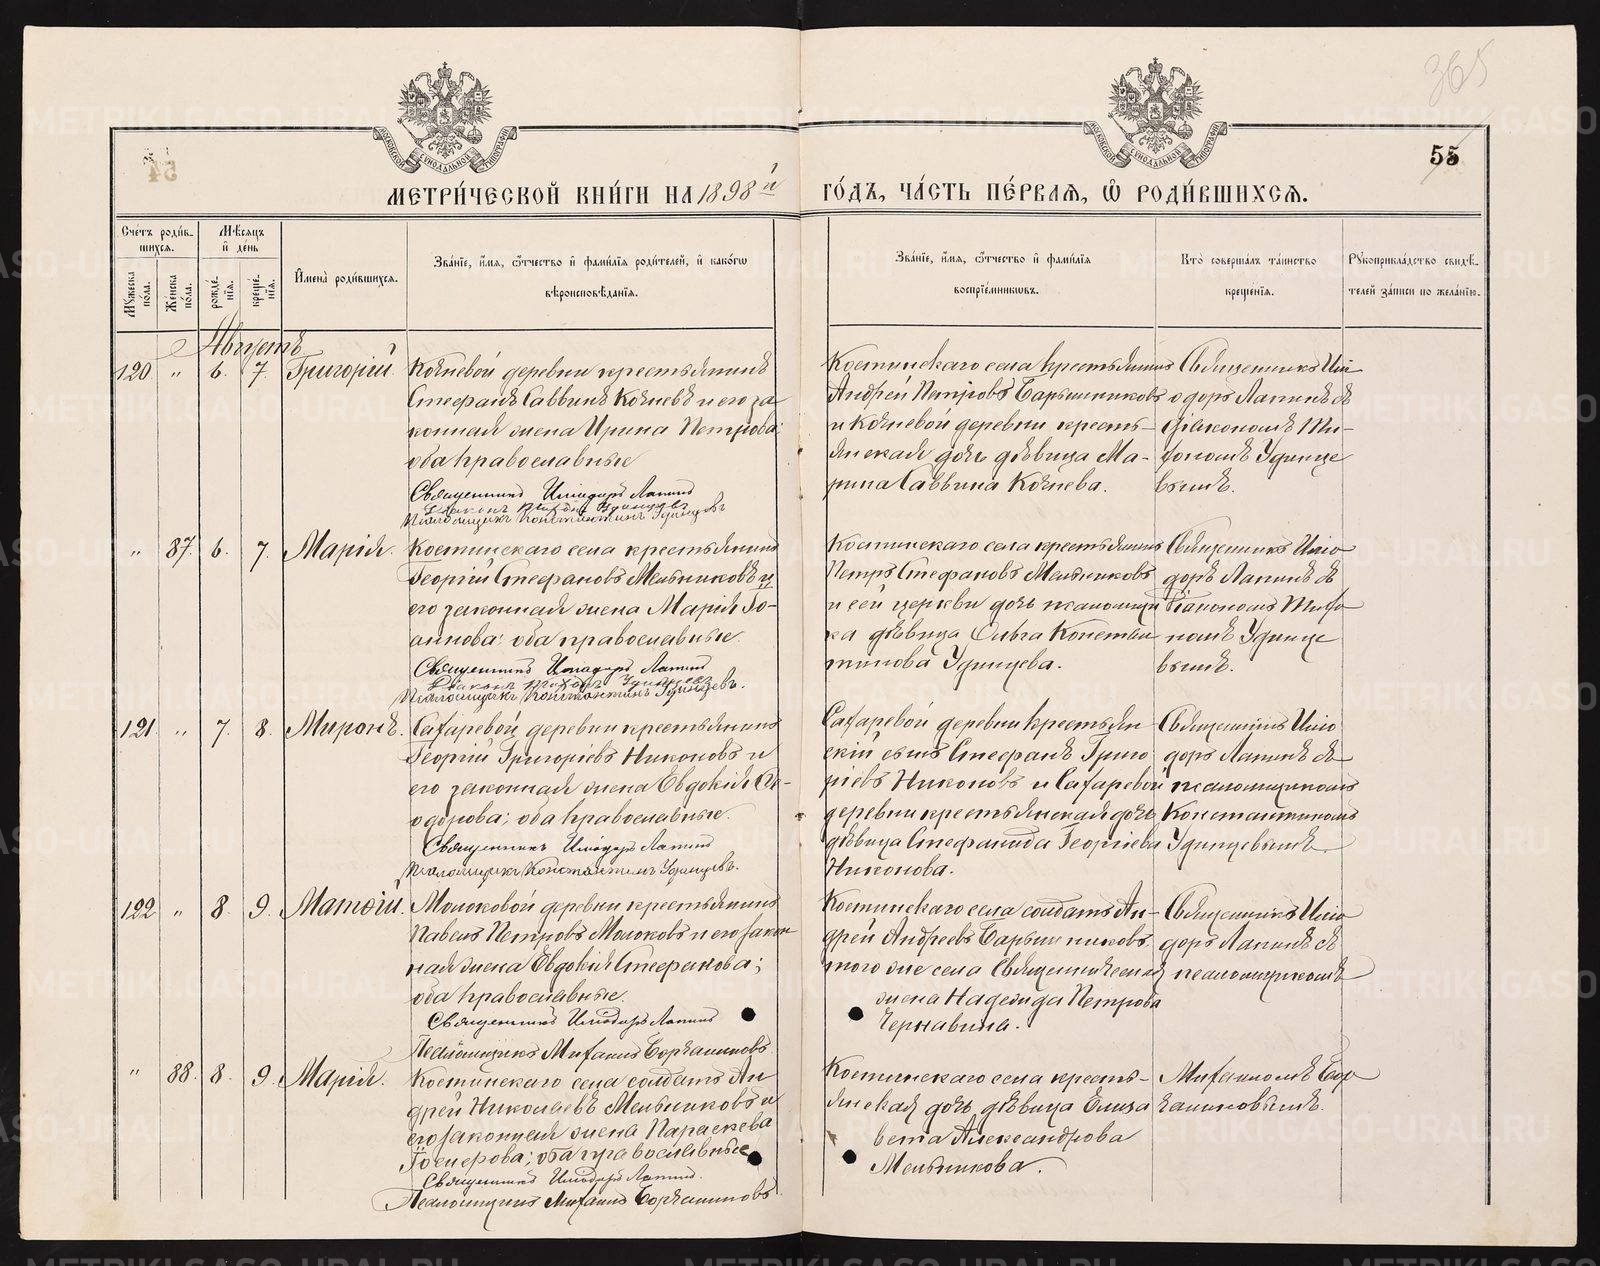 365
55
54
МОСКОВСКОЙ СУНОДАЛЬНОЙ ТИПОГРАФІИ
МОСКОВСКОЙ СУНОДАЛЬНОЙ ТИПОГРАФІИ
МЕТРИ́ЧЕСКОЙ КНИ́ГИ НА 1898й ГО́ДЪ, ЧА́СТЬ ПЕ́РВАѦ, Ѽ РОДИ́ВШИХСѦ.
Счетъ роди́вшихсѧ.
Мѣсѧцъ и҆ де́нь
Мꙋ́жеска по́ла.
Же́нска по́ла.
рожде́нїѧ.
креще́нїѧ.
И҆мена̀ роди́вшихсѧ.
Зва́нїе, и҆́мѧ, ѻ҆́тчество и҆ фами́лїѧ роди́телей, и҆ како́гѡ вѣроисповѣ́данїѧ.
Зва́нїе, и҆́мѧ, ѻ҆́тчество и҆ фами́лїѧ воспрїе́мникѡвъ.
Кто̀ соверша́лъ та́инство креще́нїѧ.
Рꙋкоприкла́дство свидѣ́телей за́писи по жела́нїю.
Августъ
120 " 6. 7. Григорій.
Кочневой деревни крестьянинъ
Стефанъ Саввинъ Кочневъ и его за-
конная жена Ирина Петрова:
оба православные
Священникъ Исидоръ Лапинъ
Діаконъ Тихонъ Удинцевъ
Псаломщикъ Константинъ Удинцевъ
Костинскаго села крестьянинъ
Андрей Петровъ Барышниковъ
и Кочневой деревни кресть-
янская дочь дѣвица Ма-
рина Саввина Кочнева.
Священникъ Иси
одоръ Лапинъ съ
діакономъ Ти-
хономъ Удинце
вымъ.
" 87. 6. 7. Марія.
Костинскаго села крестьянинъ
Георгій Стефановъ Мельниковъ и
его законная жена Марія Іо-
аннова: оба православные.
Священникъ Исидоръ Лапинъ
Діаконъ Тихонъ Удинцевъ
Псаломщикъ Константинъ Удинцевъ.
Костинскаго села крестьянинъ
Петръ Стефановъ Мельниковъ
и сей церкви дочь псаломщи
ка дѣвица Ольга Констан
тинова Удинцева.
Священникъ Исио
доръ Лапинъ съ
Діакономъ Тихо
номъ Удинце
вымъ.
121. " 7. 8. Миронъ.
Сахаревой деревни крестьянинъ
Георгій Григоріевъ Никоновъ и
его законная жена Евдокія Ѳе-
одорова; оба православные.
Священникъ Исидоръ Лапинъ
Псаломщикъ Константинъ Удинцевъ.
Сахаревой деревни крестьян
скій сынъ Стефанъ Григо
ріевъ Никоновъ и Сахаревой
деревни крестьянская дочь
дѣвица Стефанида Георгіева
Никонова.
Священникъ Исио
доръ Лапинъ съ
псаломщикомъ
Константиномъ
Удинцевымъ.
122 " 8. 9. Матѳій.
Молоковой деревни крестьянинъ
Павелъ Петровъ Молоковъ и его закон
ная жена Евдокія Стефанова;
оба православные.
Священникъ Исидоръ Лапинъ
Псаломщикъ Михаилъ Борчаниновъ
Костинскаго села солдатъ Ан-
дрей Андреевъ Барышниковъ
того же села Священническая
жена Надежда Петрова
Чернавина.
Священникъ Исио
доръ Лапинъ съ
псаломщикомъ
" 88. 8. 9. Марія.
Костинскаго села солдатъ Ан
дрей Николаевъ Мельниковъ и
его законная жена Параскева
оба православные
Священникъ Исидоръ Лапинъ.
Псаломщикъ Михаилъ Борчаниновъ
Костинскаго села кресть-
янская дочь дѣвица Елиза
вета Александрова
Мельникова.
Михаиломъ Бор
чаниновымъ.